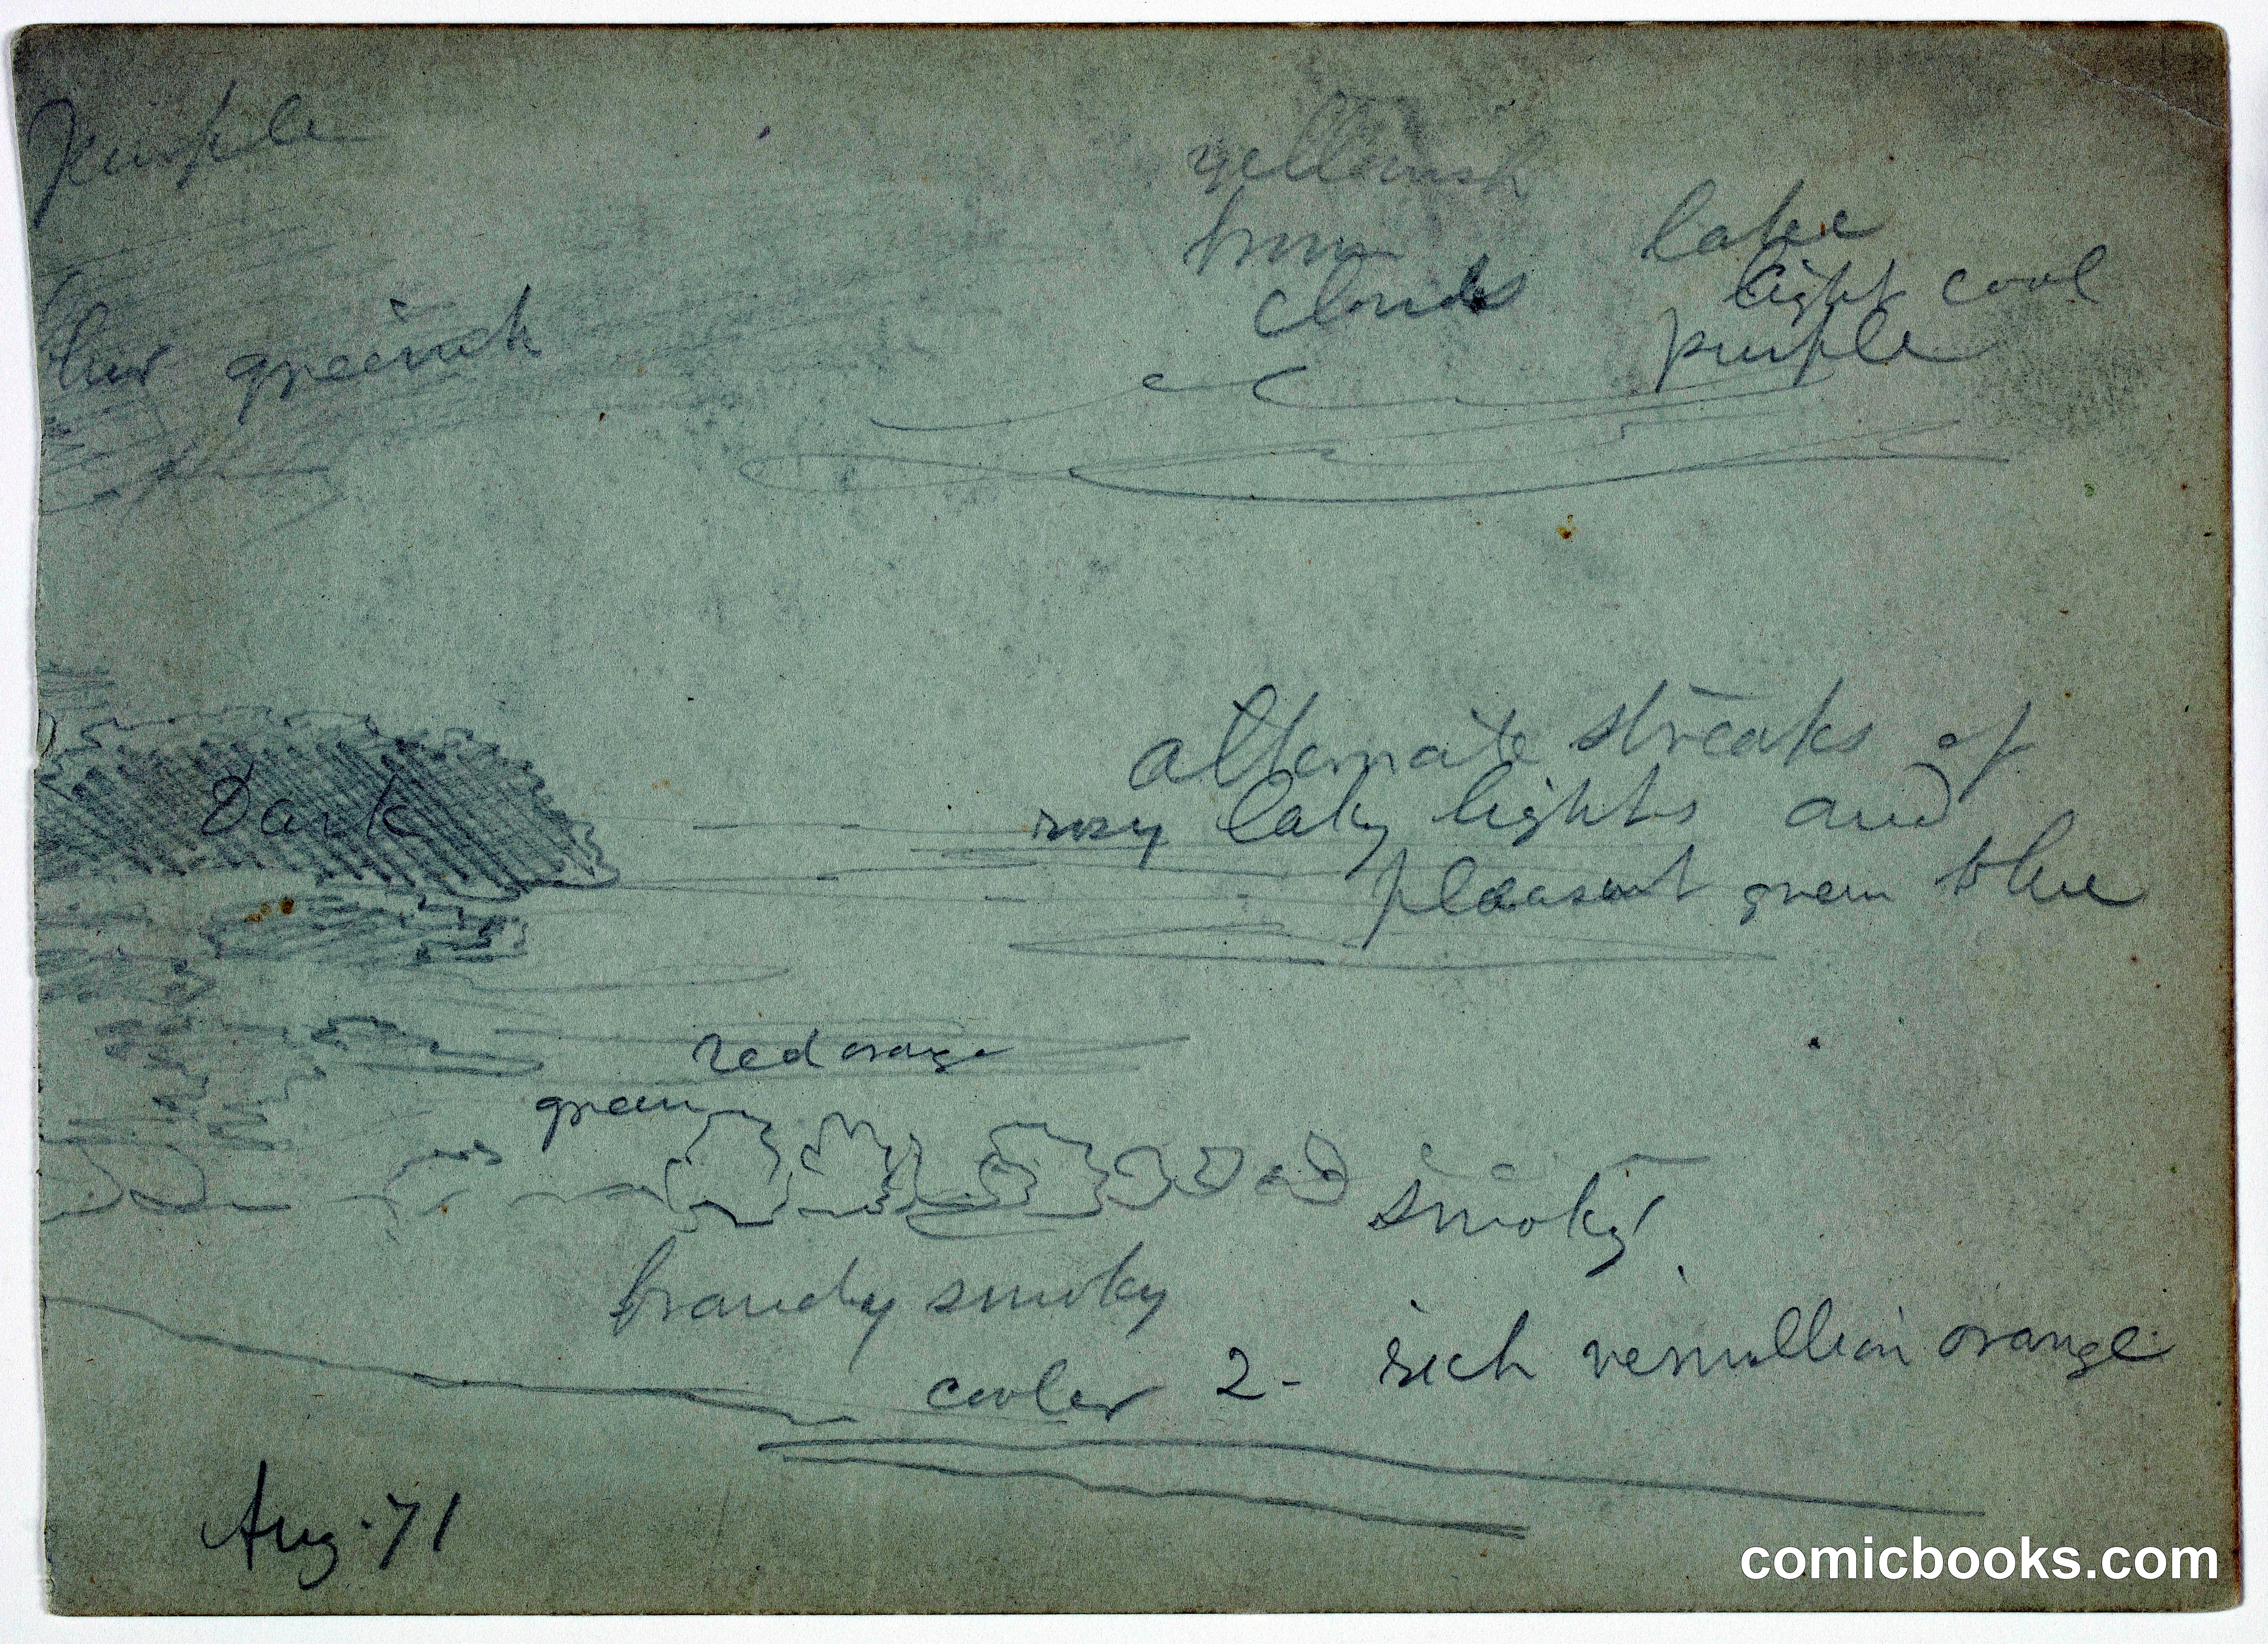 purple
yellowish
brown
clouds
lake
light cool
purple
blue greenish
alternate streaks of
rosy laky lights and
pleasant green blue
Dark
red orange
green
smoky
brandy smoky
cooler 2- rich vermillion orange
Aug. 71
comicbooks.com